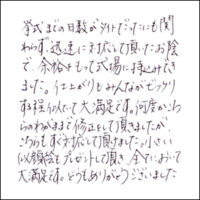 挙式までの日数がタイトだったにも関
わらず、迅速に対応して頂いたお陰
で、余裕をもって式場に持込みできま
した。仕上がりもみんながビックリ
する程似ていて大満足です。何度かこち
らのわがままで修正をして頂きましたが、
こちらもすぐ対応して頂けました。小さい
似顔絵もプレゼントして頂き、全てにおいて
大満足です。どうもありがとうございました